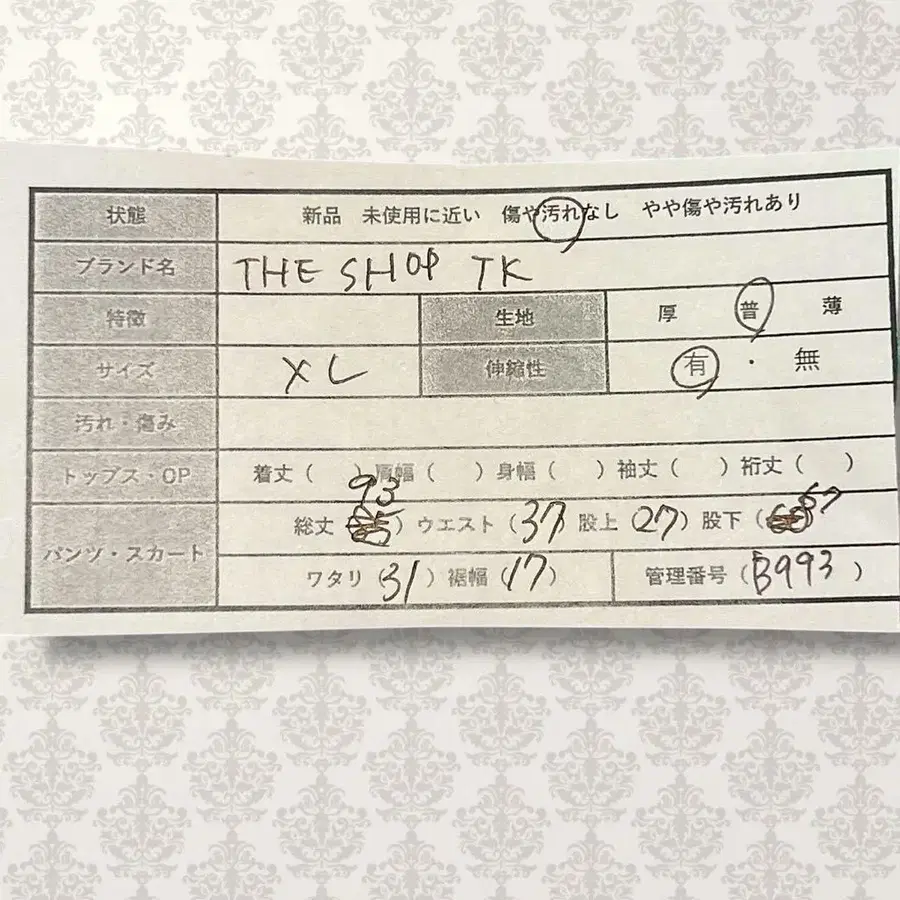 状態 新品 未使用に近い 傷や汚れなし やや傷や汚れあり
ブランド名 THE SHOP TK
特徴 生地 厚 普 薄
サイズ XL 伸縮性 有 ・ 無
汚れ・傷み
トップス・OP 着丈 ( ) 肩幅 ( ) 身幅 ( ) 袖丈 ( ) 裄丈 ( )
パンツ・スカート 総丈 93 ) ウエスト (37 股上 (27) 股下 (67
ワタリ (31) 裾幅 (17) 管理番号 (B993 )